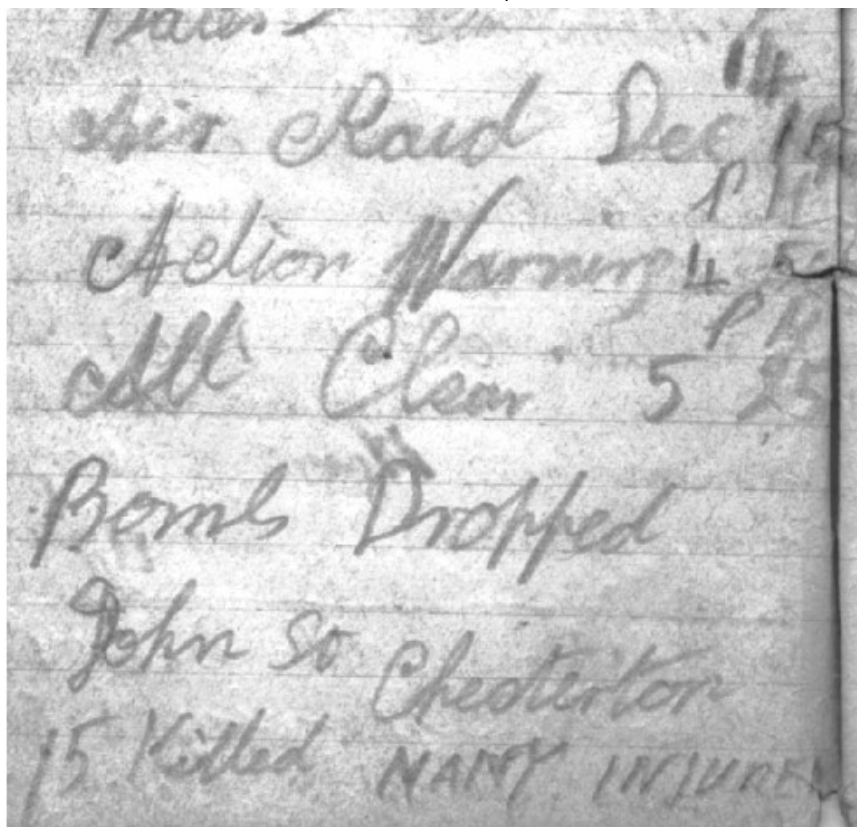 Dates
14
Air Raid Dec 15
P M
Action Warning 4 50
P M
All Clear 5 25
Bomb Dropped
John St Chesterton
15 Killed MANY INJURED